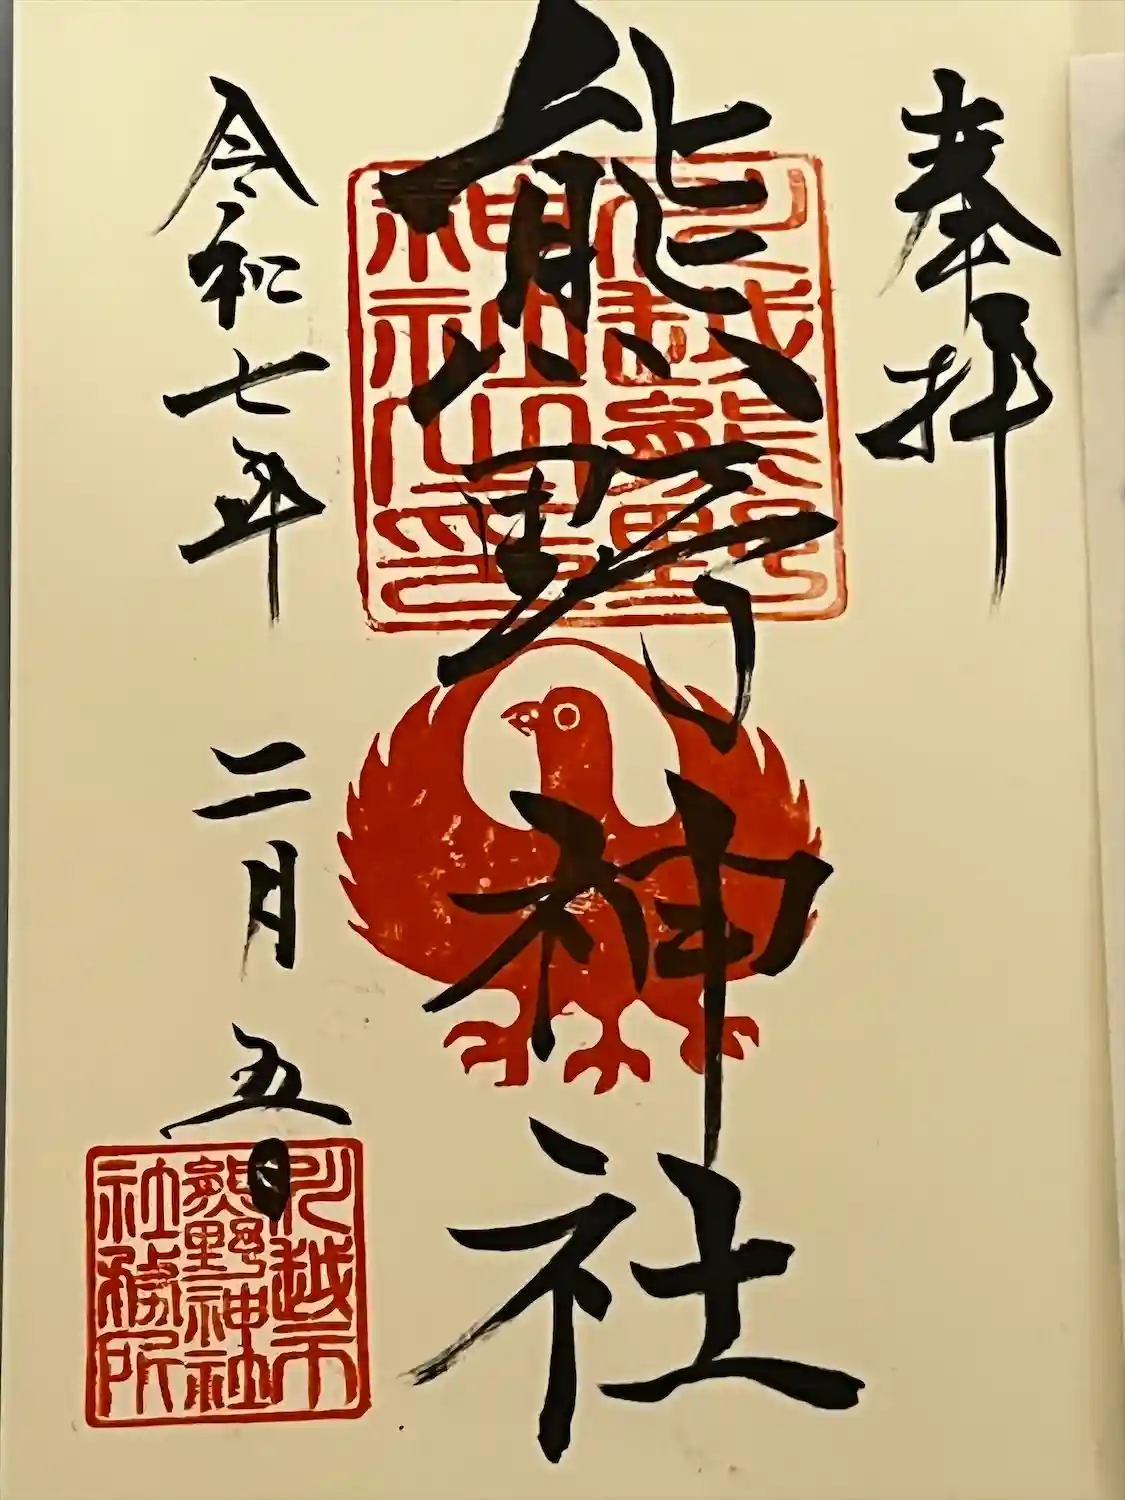 奉拝
熊野神社
川越熊野
神社之印
令和七年二月五日
川越市
熊野神社
社務所